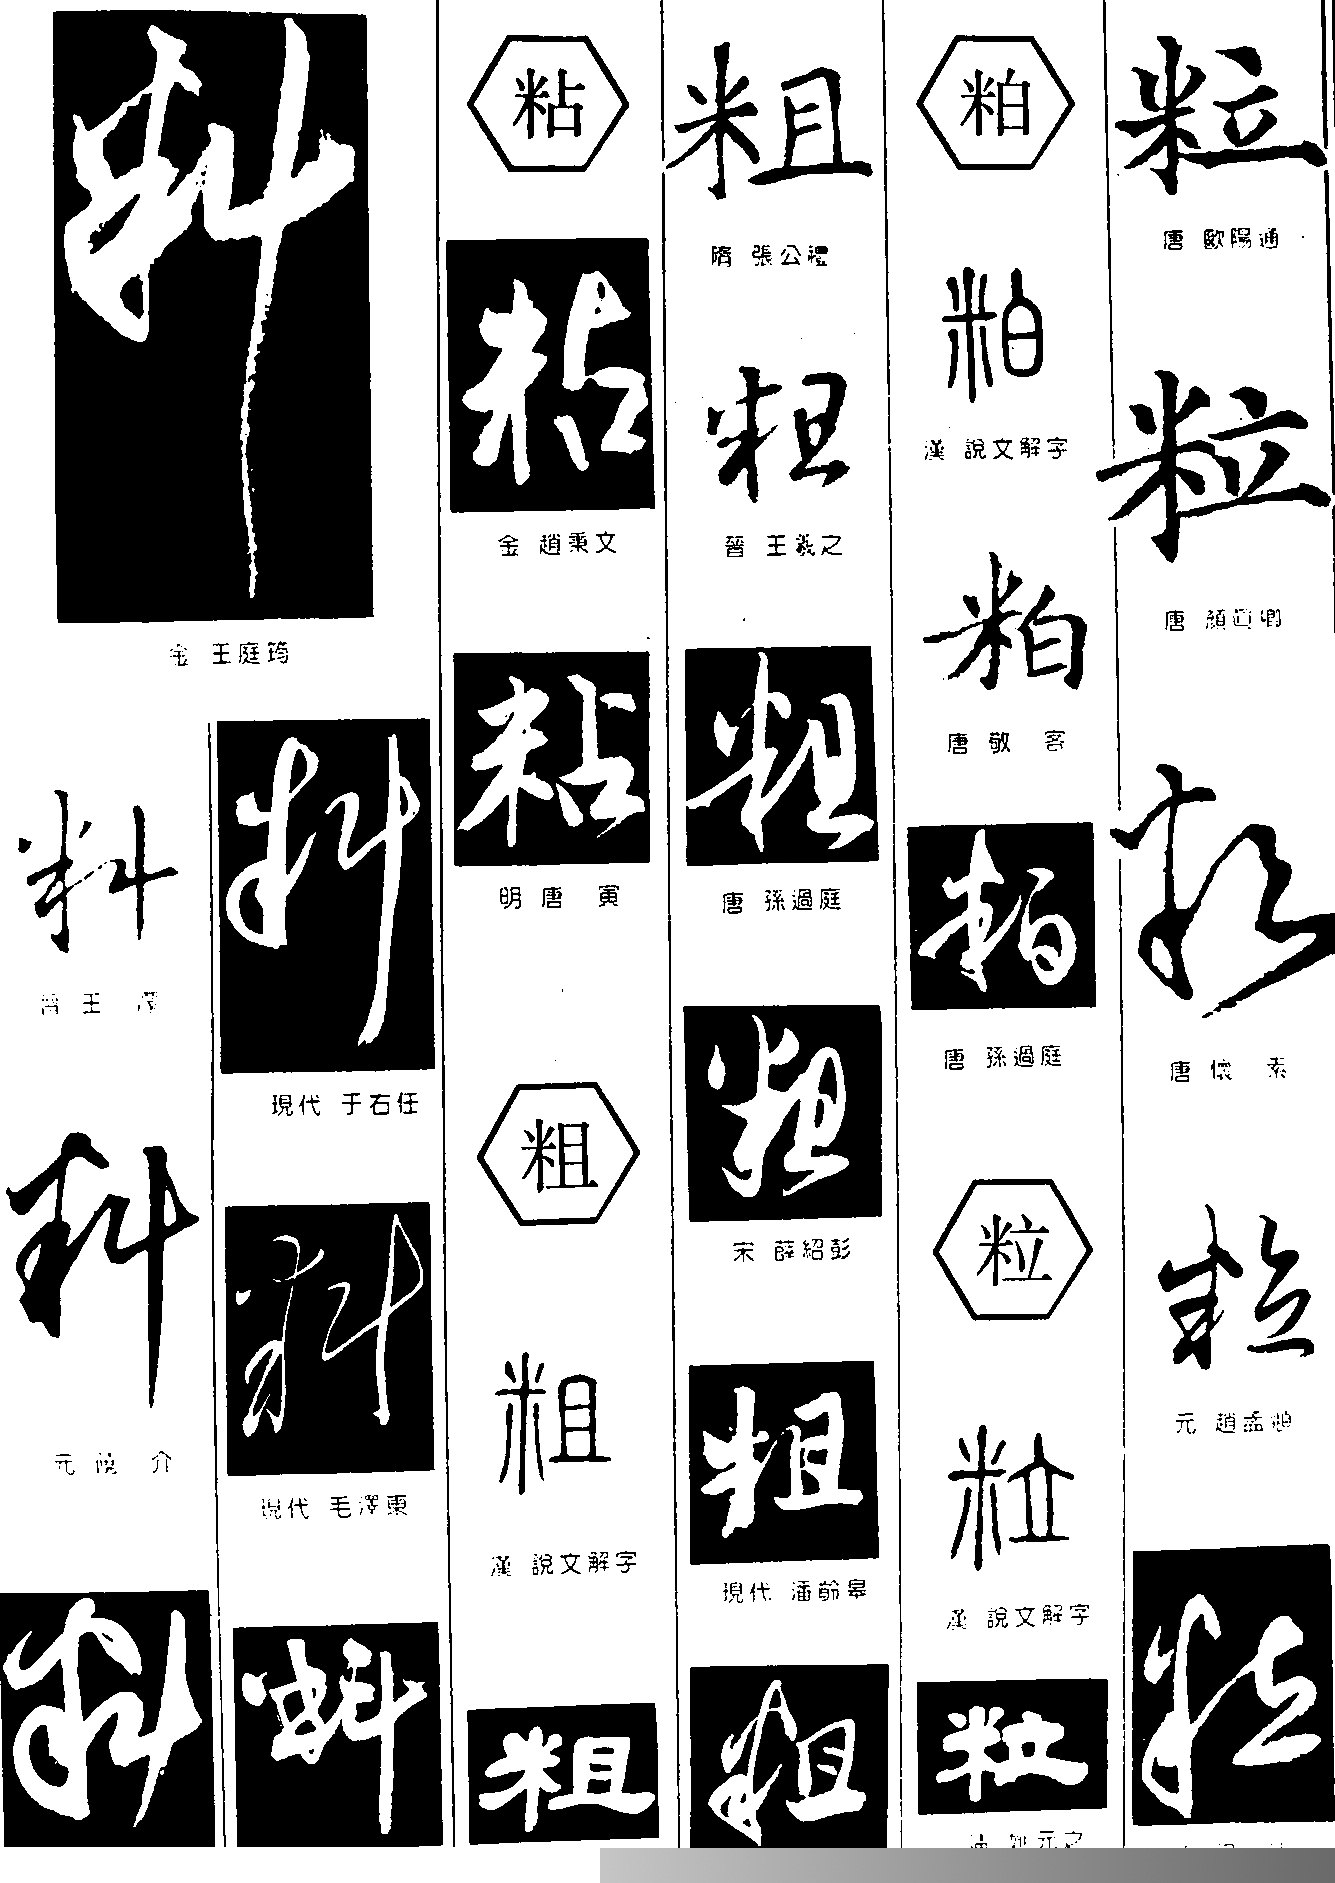 料
金 王庭筠
料
晉 王
料
元 介
料
料
現代 于右任
料
現代 毛澤東
料
粘
粘
金 趙秉文
粘
明 唐 寅
粗
粗
漢 說文解字
粗
粗
隋 張公禮
粗
晉 王羲之
粗
唐 孫過庭
粗
宋 薛紹彭
粗
現代 潘齡皋
粗
粕
粕
漢 說文解字
粕
唐 敬 客
粕
唐 孫過庭
粒
粒
漢 說文解字
粒
粒
唐 歐陽通
粒
唐 顏真卿
粒
唐 懷 素
粒
元 趙孟頫
粒